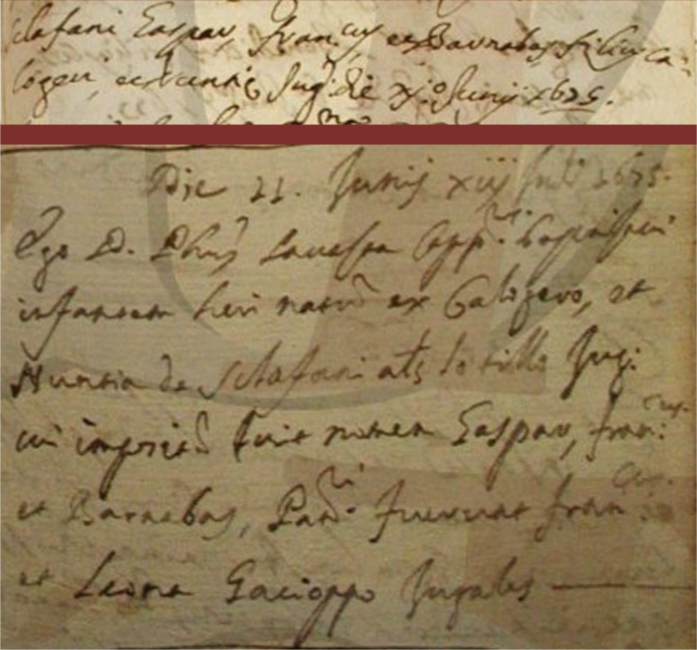 sclafani Gaspar, Fran:cus et Barnabas filius Ca
logeri, et Nuntiæ Jug: die xi.o Junij 1675.
Die 11. Junij xiij Ind: 1675.
Ego D. Phus Lavespa Capp: baptizavi
infantem heri natu ex Caligero, et
Nuntia de Sclafani als lo tillo Jug:
cui imposit fuit nomen Gaspar, fran:cus
et Barnabas, Pat:ni fuerunt fran:cus
et Leona Gacioppo Jugales